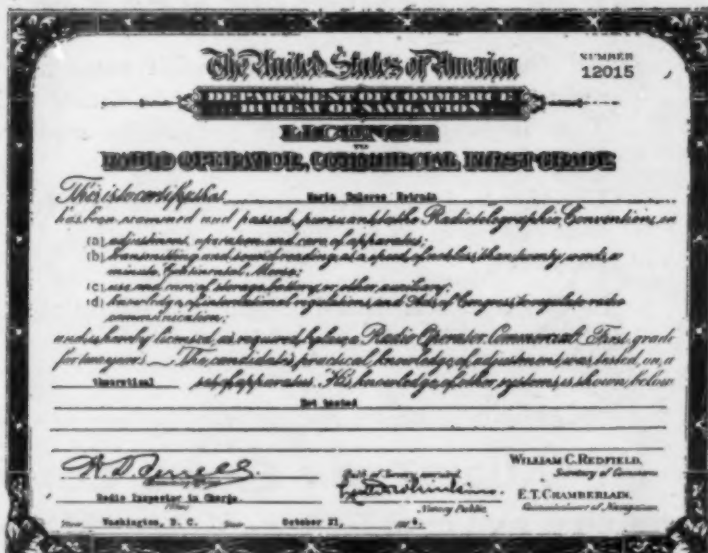 The United States of America
NUMBER
12015
DEPARTMENT OF COMMERCE
BUREAU OF NAVIGATION
LICENSE
TO
RADIO OPERATOR, COMMERCIAL FIRST GRADE
This is to certify that Maria Dolores Estrada
has been examined and passed, pursuant to the Radiotelegraphic Conventions, on
(a) adjustment, operation and care of apparatus;
(b) transmitting and sound reading at a speed of not less than twenty words a
minute, Continental Morse;
(c) use and care of storage battery or other auxiliary;
(d) knowledge of international regulations, and Acts of Congress to regulate radio
communication;
and is hereby licensed, as required by law, a Radio Operator, Commercial First grade
for two years. The candidate's practical knowledge of adjustment was tested on a
theoretical set of apparatus. His knowledge of other systems is shown below
Not tested
WILLIAM C. REDFIELD,
Secretary of Commerce
Oath of Secrecy executed
Radio Inspector in Charge.
Notary Public.
E. T. CHAMBERLAIN,
Commissioner of Navigation
Place Washington, D. C. Date October 21, 191